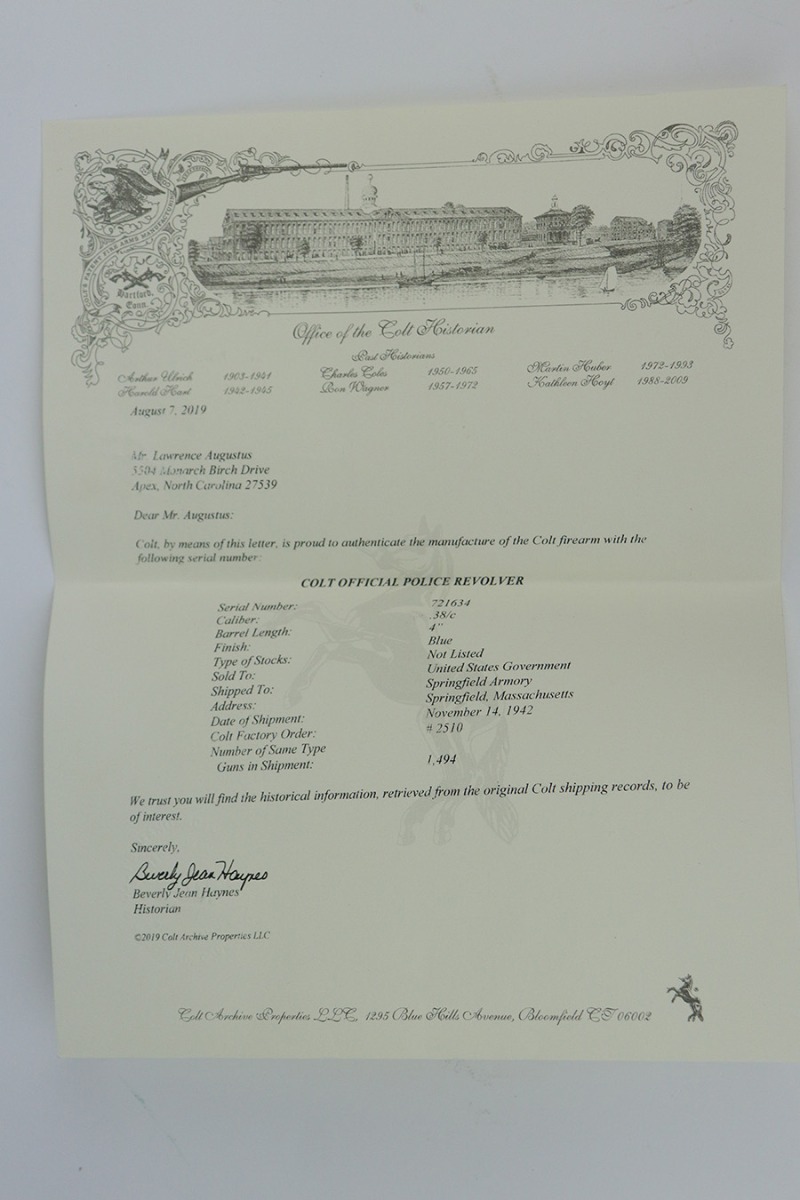 Hartford,
Conn.
Office of the Colt Historian
Past Historians
Arthur Ulrich 1903-1941 Charles Coles 1950-1965 Martin Huber 1972-1993
Harold Hart 1942-1945 Ron Wagner 1957-1972 Kathleen Hoyt 1988-2009
August 7, 2019
Mr. Lawrence Augustus
Monarch Birch Drive
Apex, North Carolina 27539
Dear Mr. Augustus:
Colt, by means of this letter, is proud to authenticate the manufacture of the Colt firearm with the
following serial number:
COLT OFFICIAL POLICE REVOLVER
Serial Number: 721634
Caliber: .38/c
Barrel Length: 4"
Finish: Blue
Type of Stocks: Not Listed
Sold To: United States Government
Shipped To: Springfield Armory
Address: Springfield, Massachusetts
Date of Shipment: November 14, 1942
Colt Factory Order: # 2510
Number of Same Type
Guns in Shipment: 1,494
We trust you will find the historical information, retrieved from the original Colt shipping records, to be
of interest.
Sincerely,
Beverly Jean Haynes
Beverly Jean Haynes
Historian
©2019 Colt Archive Properties LLC
Colt Archive Properties LLC, 1295 Blue Hills Avenue, Bloomfield CT 06002